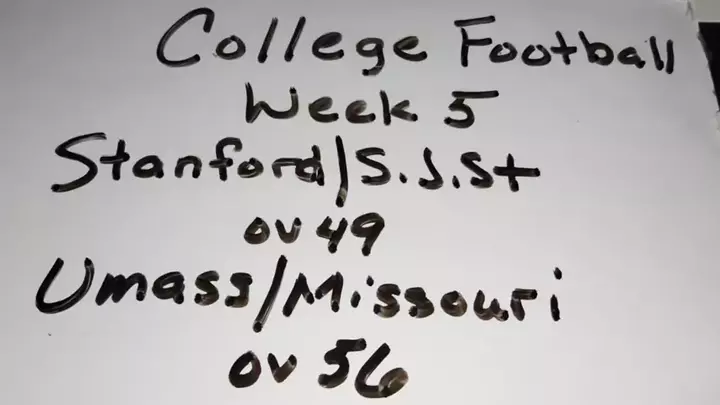 College Football
Week 5
Stanford/S.J.St
ov 49
Umass/Missouri
ov 56